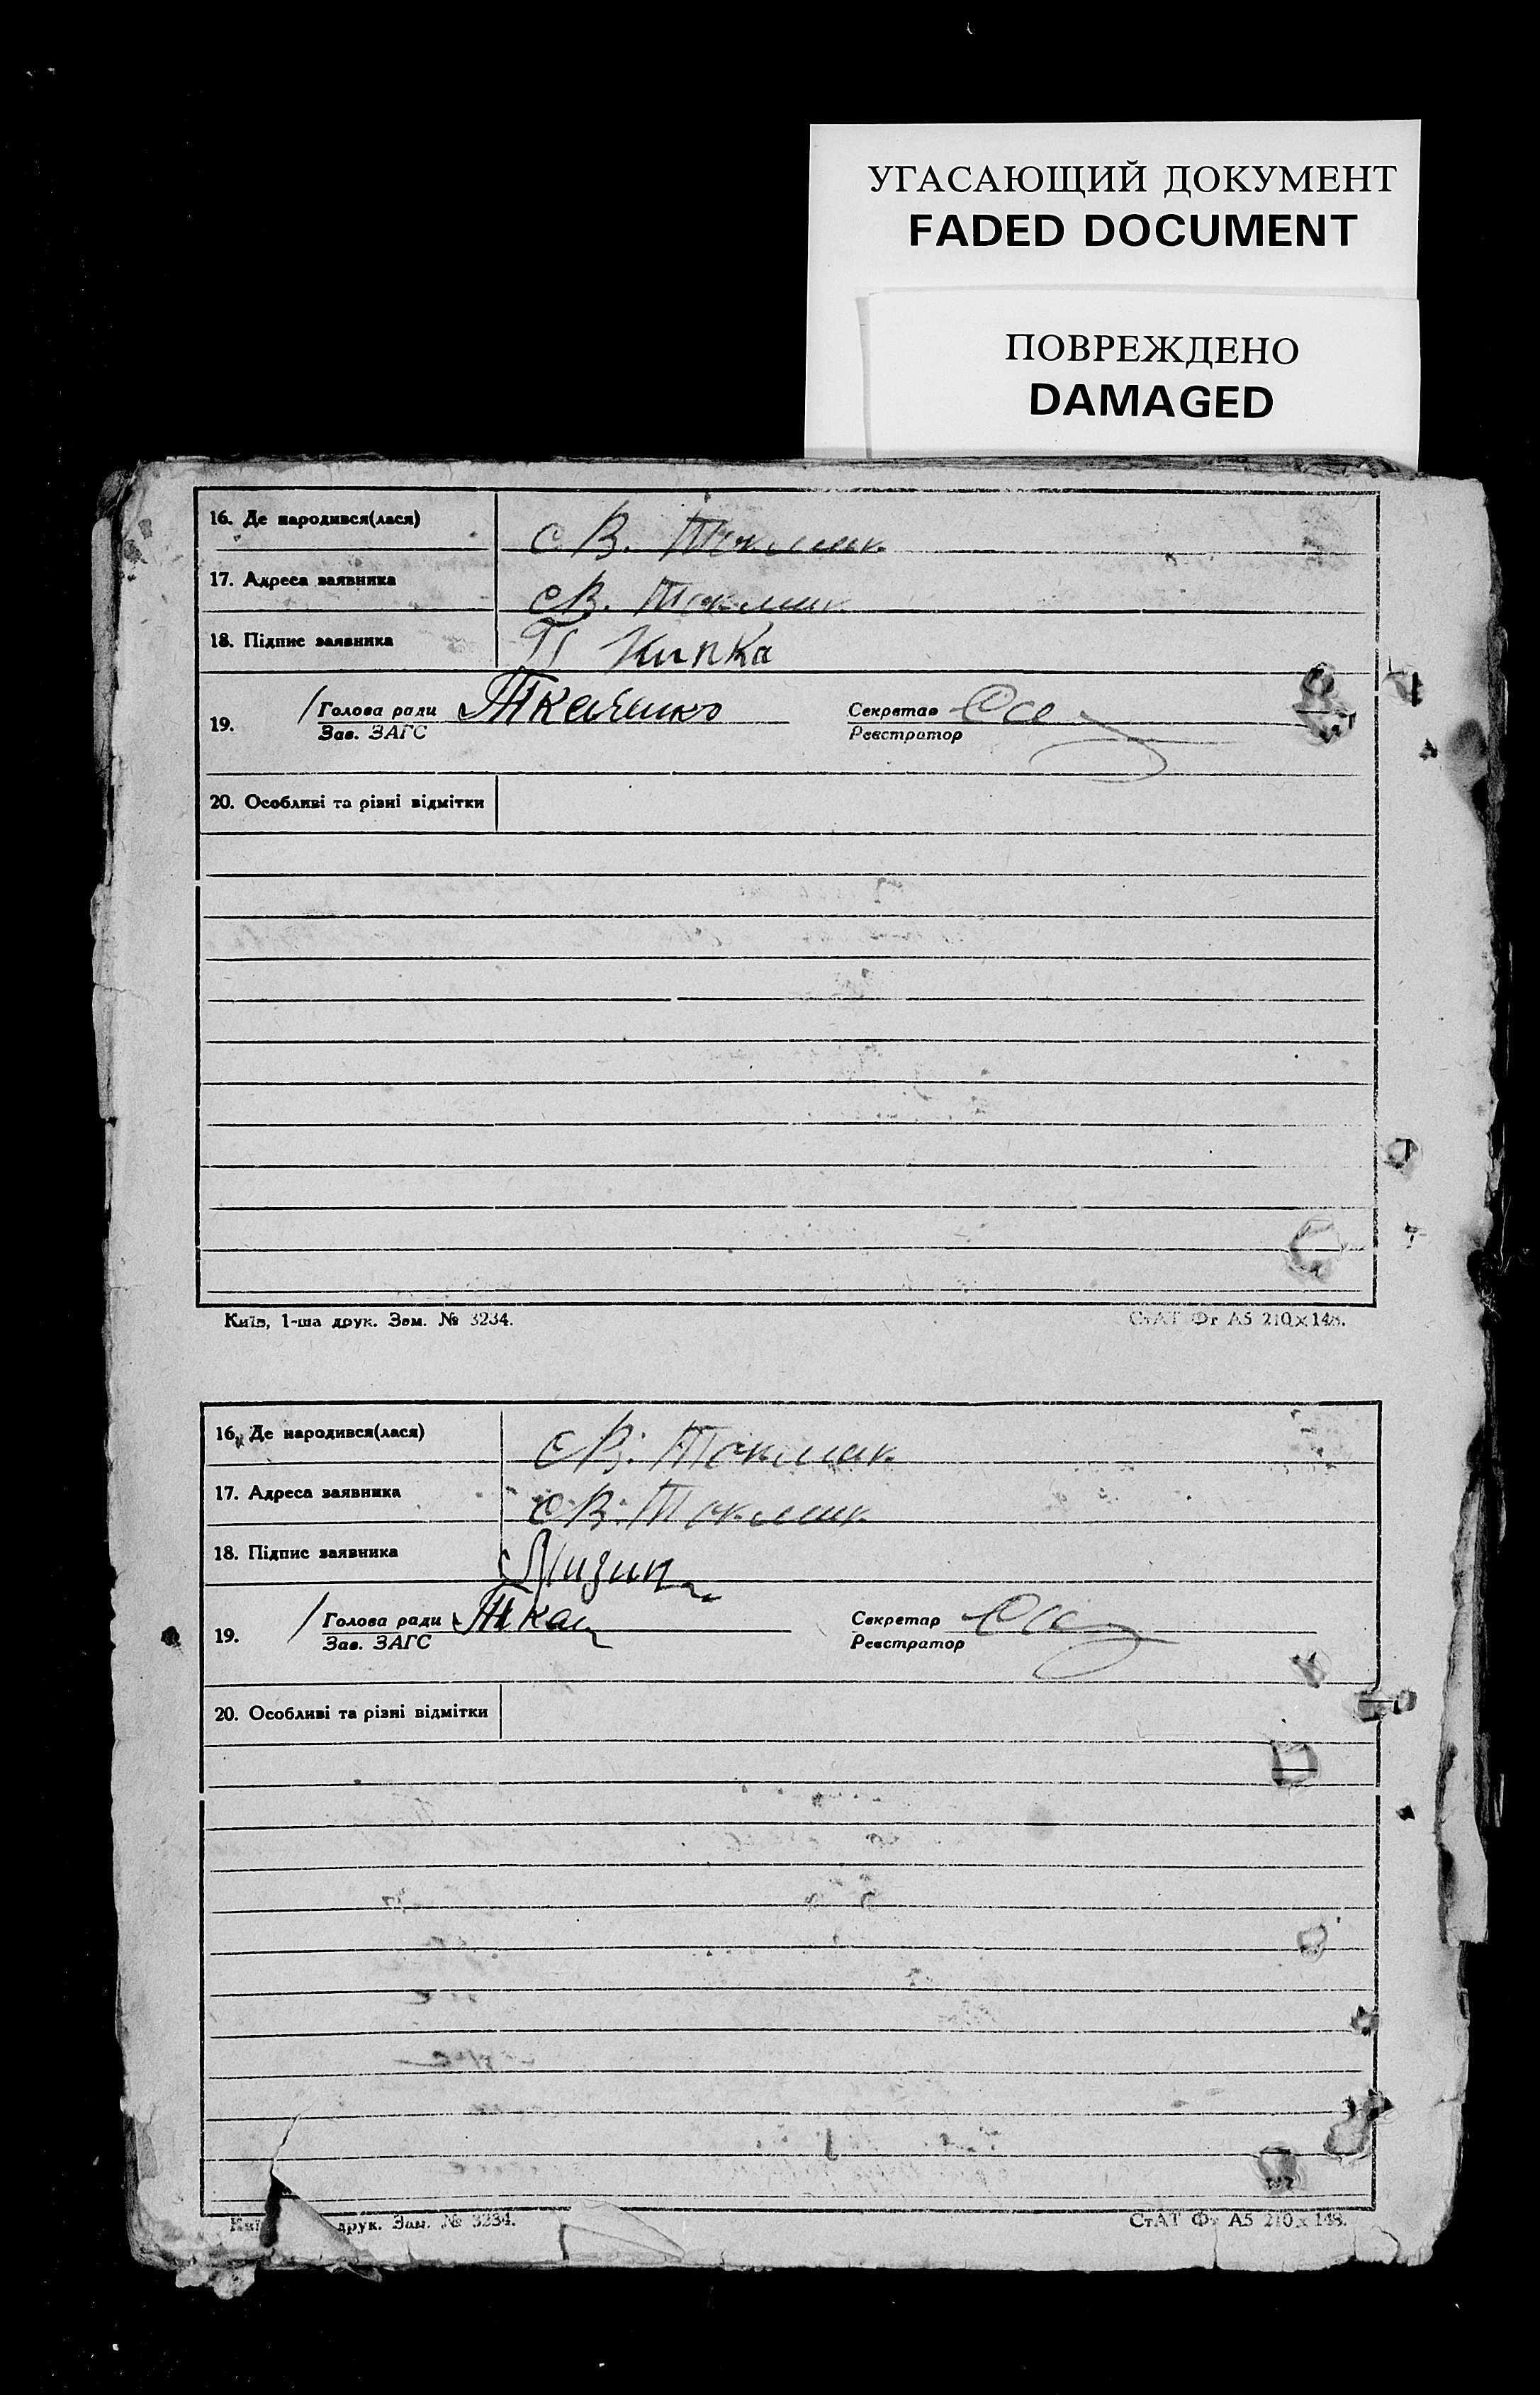 УГАСАЮЩИЙ ДОКУМЕНТ
FADED DOCUMENT
ПОВРЕЖДЕНО
DAMAGED
16. Де народився(лася) с В. Токмак
17. Адреса заявника с В. Токмак
18. Підпис заявника П Кипка
19. Голова ради Ткаченко Секретар
Зав. ЗАГС Реєстратор
20. Особливі та різні відмітки
Київ, 1-ша друк. Зам. № 3234. СтАТ Фт А5 210×148.
16. Де народився(лася) с В. Токмак
17. Адреса заявника с В. Токмак
18. Підпис заявника
19. Голова ради Ткач Секретар
Зав. ЗАГС Реєстратор
20. Особливі та різні відмітки
друк. Зам. № 3234. СтАТ Фт А5 210×148.